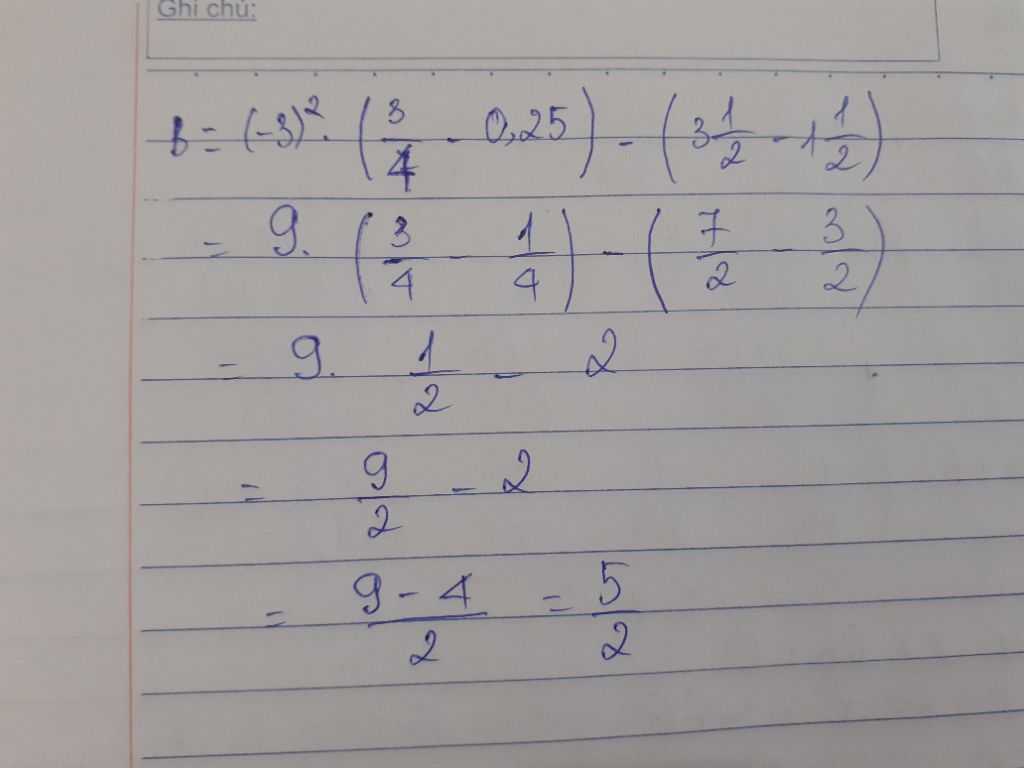 Ghi chú:
b = (-3)². (3/4 - 0,25) - (3 1/2 - 1 1/2)
= 9. (3/4 - 1/4) - (7/2 - 3/2)
= 9. 1/2 - 2
= 9/2 - 2
= (9 - 4)/2 = 5/2